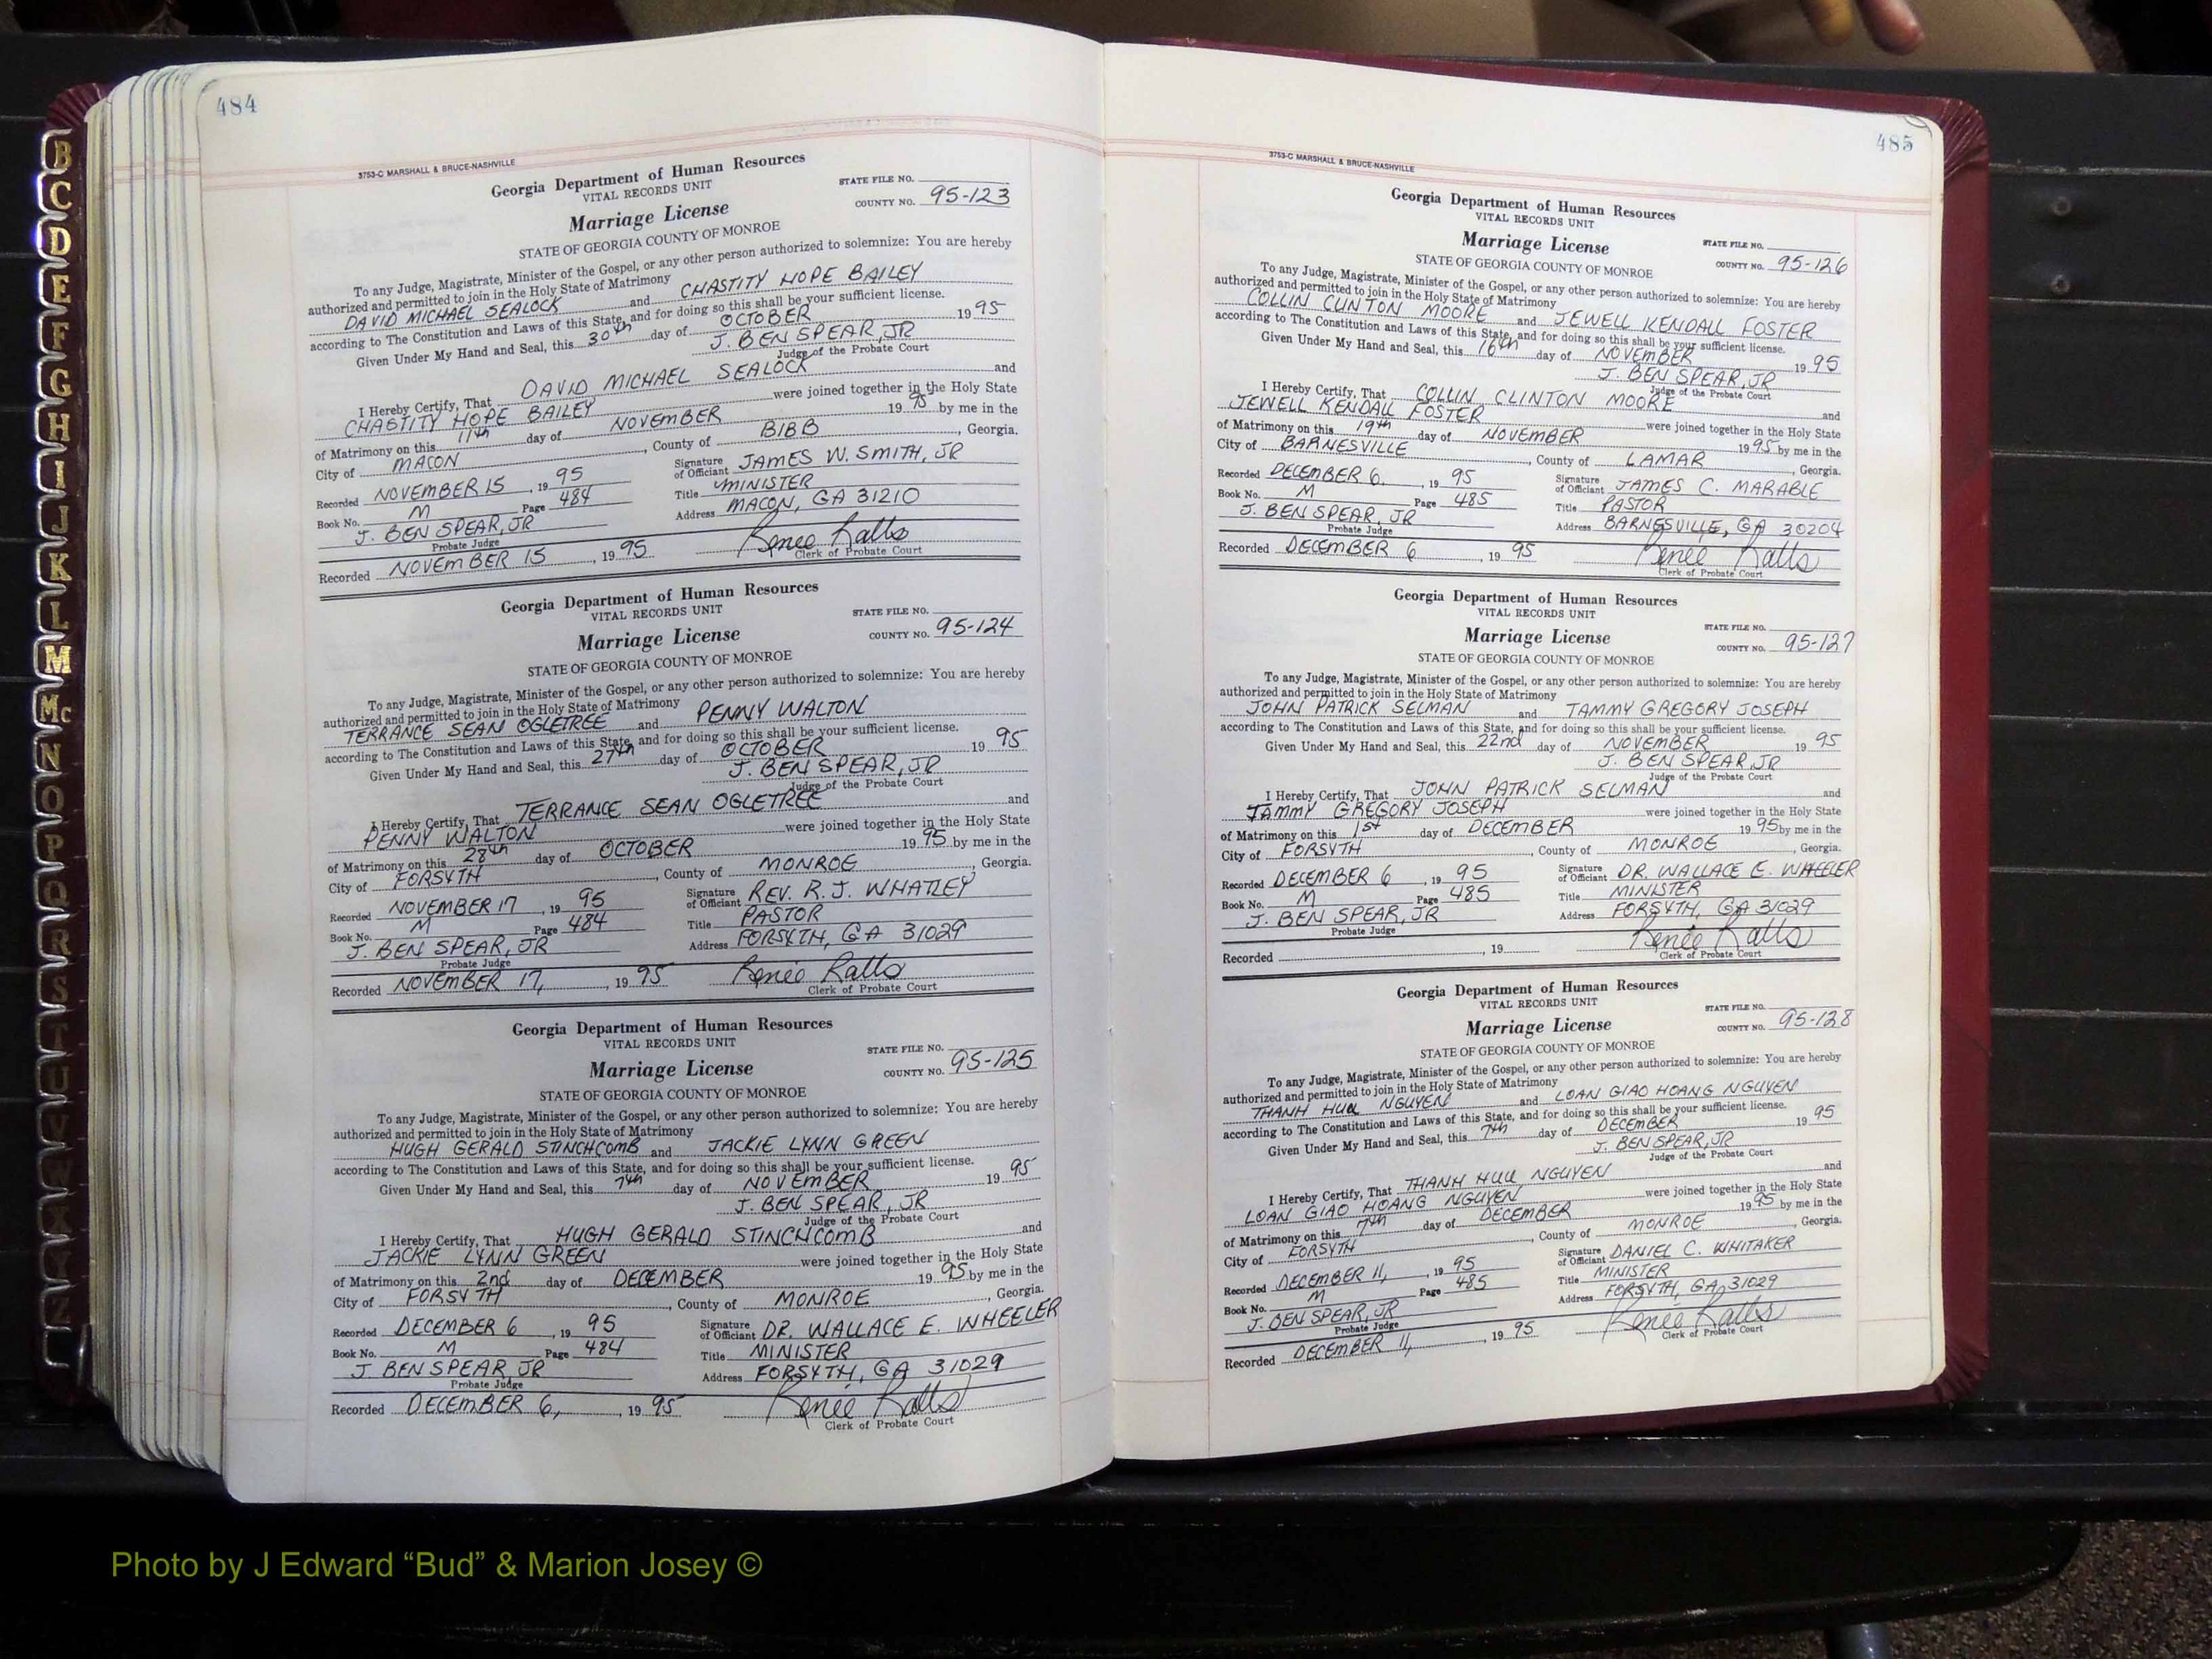 B
C
D
E
F
G
H
I
J
K
L
M
Mc
N
O
P
Q
R
S
T
U
V
W
X
Y
Z
484
3753-C MARSHALL & BRUCE-NASHVILLE
Georgia Department of Human Resources
VITAL RECORDS UNIT
STATE FILE NO.
Marriage License
COUNTY NO. 95-123
STATE OF GEORGIA COUNTY OF MONROE
To any Judge, Magistrate, Minister of the Gospel, or any other person authorized to solemnize: You are hereby
authorized and permitted to join in the Holy State of Matrimony
DAVID MICHAEL SEALOCK and CHASTITY HOPE BAILEY
according to The Constitution and Laws of this State, and for doing so this shall be your sufficient license.
Given Under My Hand and Seal, this 30th day of OCTOBER 1995
J. BEN SPEAR, JR
Judge of the Probate Court
I Hereby Certify, That DAVID MICHAEL SEALOCK and
CHASTITY HOPE BAILEY were joined together in the Holy State
of Matrimony on this 11th day of NOVEMBER 1995 by me in the
City of MACON, County of BIBB, Georgia.
Recorded NOVEMBER 15, 1995 Signature of Officiant JAMES W. SMITH, JR
Book No. M Page 484 Title MINISTER
J. BEN SPEAR, JR Address MACON, GA 31210
Probate Judge
Recorded NOVEMBER 15, 1995 Renee Ralls
Clerk of Probate Court
Georgia Department of Human Resources
VITAL RECORDS UNIT
STATE FILE NO.
Marriage License
COUNTY NO. 95-124
STATE OF GEORGIA COUNTY OF MONROE
To any Judge, Magistrate, Minister of the Gospel, or any other person authorized to solemnize: You are hereby
authorized and permitted to join in the Holy State of Matrimony
TERRANCE SEAN OGLETREE and PENNY WALTON
according to The Constitution and Laws of this State, and for doing so this shall be your sufficient license.
Given Under My Hand and Seal, this 27th day of OCTOBER 1995
J. BEN SPEAR, JR
Judge of the Probate Court
I Hereby Certify, That TERRANCE SEAN OGLETREE and
PENNY WALTON were joined together in the Holy State
of Matrimony on this 28th day of OCTOBER 1995 by me in the
City of FORSYTH, County of MONROE, Georgia.
Recorded NOVEMBER 17, 1995 Signature of Officiant REV. R. J. WHATLEY
Book No. M Page 484 Title PASTOR
J. BEN SPEAR, JR Address FORSYTH, GA 31029
Probate Judge
Recorded NOVEMBER 17, 1995 Renee Ralls
Clerk of Probate Court
Georgia Department of Human Resources
VITAL RECORDS UNIT
STATE FILE NO.
Marriage License
COUNTY NO. 95-125
STATE OF GEORGIA COUNTY OF MONROE
To any Judge, Magistrate, Minister of the Gospel, or any other person authorized to solemnize: You are hereby
authorized and permitted to join in the Holy State of Matrimony
HUGH GERALD STINCHCOMB and JACKIE LYNN GREEN
according to The Constitution and Laws of this State, and for doing so this shall be your sufficient license.
Given Under My Hand and Seal, this 7th day of NOVEMBER 1995
J. BEN SPEAR, JR
Judge of the Probate Court
I Hereby Certify, That HUGH GERALD STINCHCOMB and
JACKIE LYNN GREEN were joined together in the Holy State
of Matrimony on this 2nd day of DECEMBER 1995 by me in the
City of FORSYTH, County of MONROE, Georgia.
Recorded DECEMBER 6, 1995 Signature of Officiant DR. WALLACE E. WHEELER
Book No. M Page 484 Title MINISTER
J. BEN SPEAR, JR Address FORSYTH, GA 31029
Probate Judge
Recorded DECEMBER 6, 1995 Renee Ralls
Clerk of Probate Court
485
3753-C MARSHALL & BRUCE-NASHVILLE
Georgia Department of Human Resources
VITAL RECORDS UNIT
Marriage License STATE FILE NO.
STATE OF GEORGIA COUNTY OF MONROE COUNTY NO. 95-126
To any Judge, Magistrate, Minister of the Gospel, or any other person authorized to solemnize: You are hereby
authorized and permitted to join in the Holy State of Matrimony
COLLIN CLINTON MOORE and JEWELL KENDALL FOSTER
according to The Constitution and Laws of this State, and for doing so this shall be your sufficient license.
Given Under My Hand and Seal, this 16th day of NOVEMBER 1995
J. BEN SPEAR, JR
Judge of the Probate Court
I Hereby Certify, That COLLIN CLINTON MOORE and
JEWELL KENDALL FOSTER were joined together in the Holy State
of Matrimony on this 19th day of NOVEMBER 1995 by me in the
City of BARNESVILLE, County of LAMAR, Georgia.
Recorded DECEMBER 6, 1995 Signature of Officiant JAMES C. MARABLE
Book No. M Page 485 Title PASTOR
J. BEN SPEAR, JR Address BARNESVILLE, GA 30204
Probate Judge
Recorded DECEMBER 6, 1995 Renee Ralls
Clerk of Probate Court
Georgia Department of Human Resources
VITAL RECORDS UNIT
STATE FILE NO.
Marriage License
COUNTY NO. 95-127
STATE OF GEORGIA COUNTY OF MONROE
To any Judge, Magistrate, Minister of the Gospel, or any other person authorized to solemnize: You are hereby
authorized and permitted to join in the Holy State of Matrimony
JOHN PATRICK SELMAN and TAMMY GREGORY JOSEPH
according to The Constitution and Laws of this State, and for doing so this shall be your sufficient license.
Given Under My Hand and Seal, this 22nd day of NOVEMBER 1995
J. BEN SPEAR, JR
Judge of the Probate Court
I Hereby Certify, That JOHN PATRICK SELMAN and
TAMMY GREGORY JOSEPH were joined together in the Holy State
of Matrimony on this 1st day of DECEMBER 1995 by me in the
City of FORSYTH, County of MONROE, Georgia.
Recorded DECEMBER 6, 1995 Signature of Officiant DR. WALLACE E. WHEELER
Book No. M Page 485 Title MINISTER
J. BEN SPEAR, JR Address FORSYTH, GA 31029
Probate Judge
Recorded , 19 Renee Ralls
Clerk of Probate Court
Georgia Department of Human Resources
VITAL RECORDS UNIT
STATE FILE NO.
Marriage License
COUNTY NO. 95-128
STATE OF GEORGIA COUNTY OF MONROE
To any Judge, Magistrate, Minister of the Gospel, or any other person authorized to solemnize: You are hereby
authorized and permitted to join in the Holy State of Matrimony
THANH HUU NGUYEN and LOAN GIAO HOANG NGUYEN
according to The Constitution and Laws of this State, and for doing so this shall be your sufficient license.
Given Under My Hand and Seal, this 7th day of DECEMBER 1995
J. BEN SPEAR, JR
Judge of the Probate Court
I Hereby Certify, That THANH HUU NGUYEN and
LOAN GIAO HOANG NGUYEN were joined together in the Holy State
of Matrimony on this 7th day of DECEMBER 1995 by me in the
City of FORSYTH, County of MONROE, Georgia.
Recorded DECEMBER 11, 1995 Signature of Officiant DANIEL C. WHITAKER
Book No. M Page 485 Title MINISTER
J. BEN SPEAR, JR Address FORSYTH, GA 31029
Probate Judge
Recorded DECEMBER 11, 1995 Renee Ralls
Clerk of Probate Court
Photo by J Edward “Bud” & Marion Josey ©